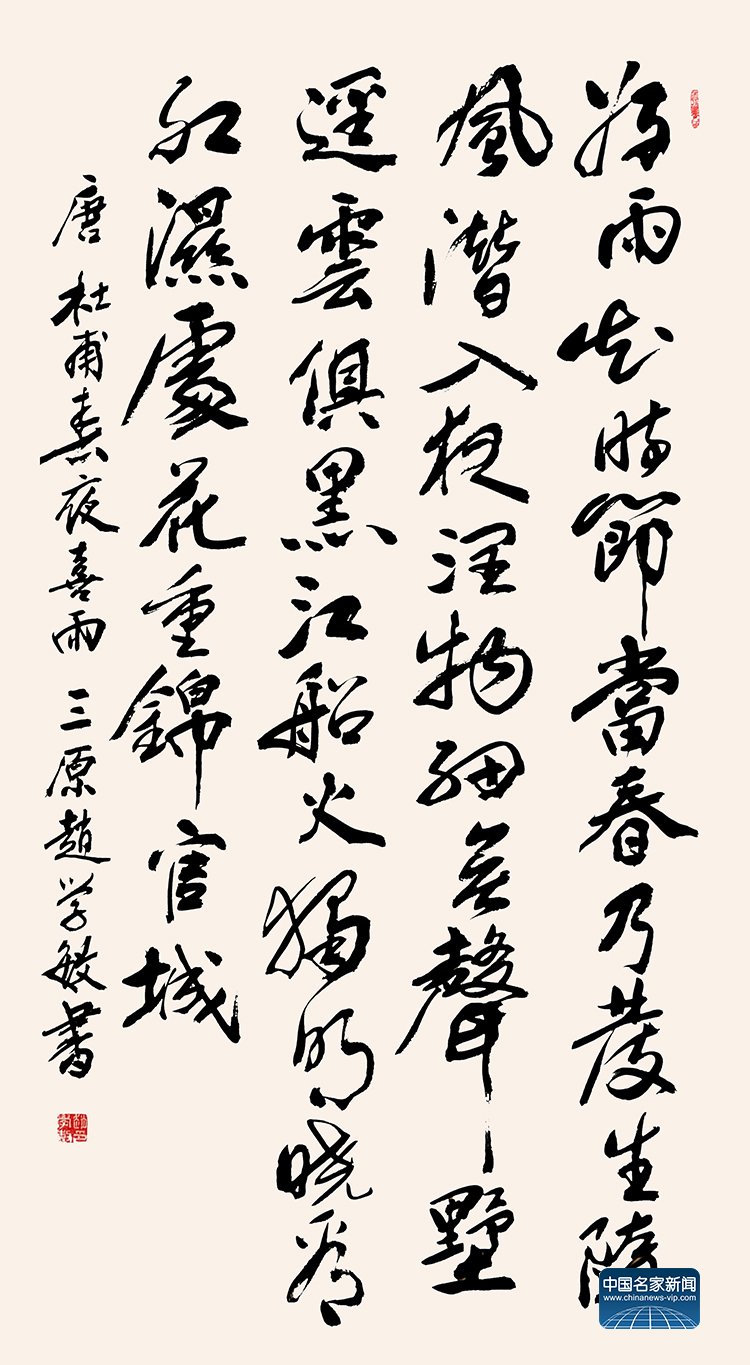 好雨知時節當春乃發生隨
風潛入夜潤物細無聲墅
逕雲俱黑江船火獨明曉看
紅濕處花重錦官城
唐 杜甫春夜喜雨 三原趙学敏書
中国名家新闻
www.chinanews-vip.com